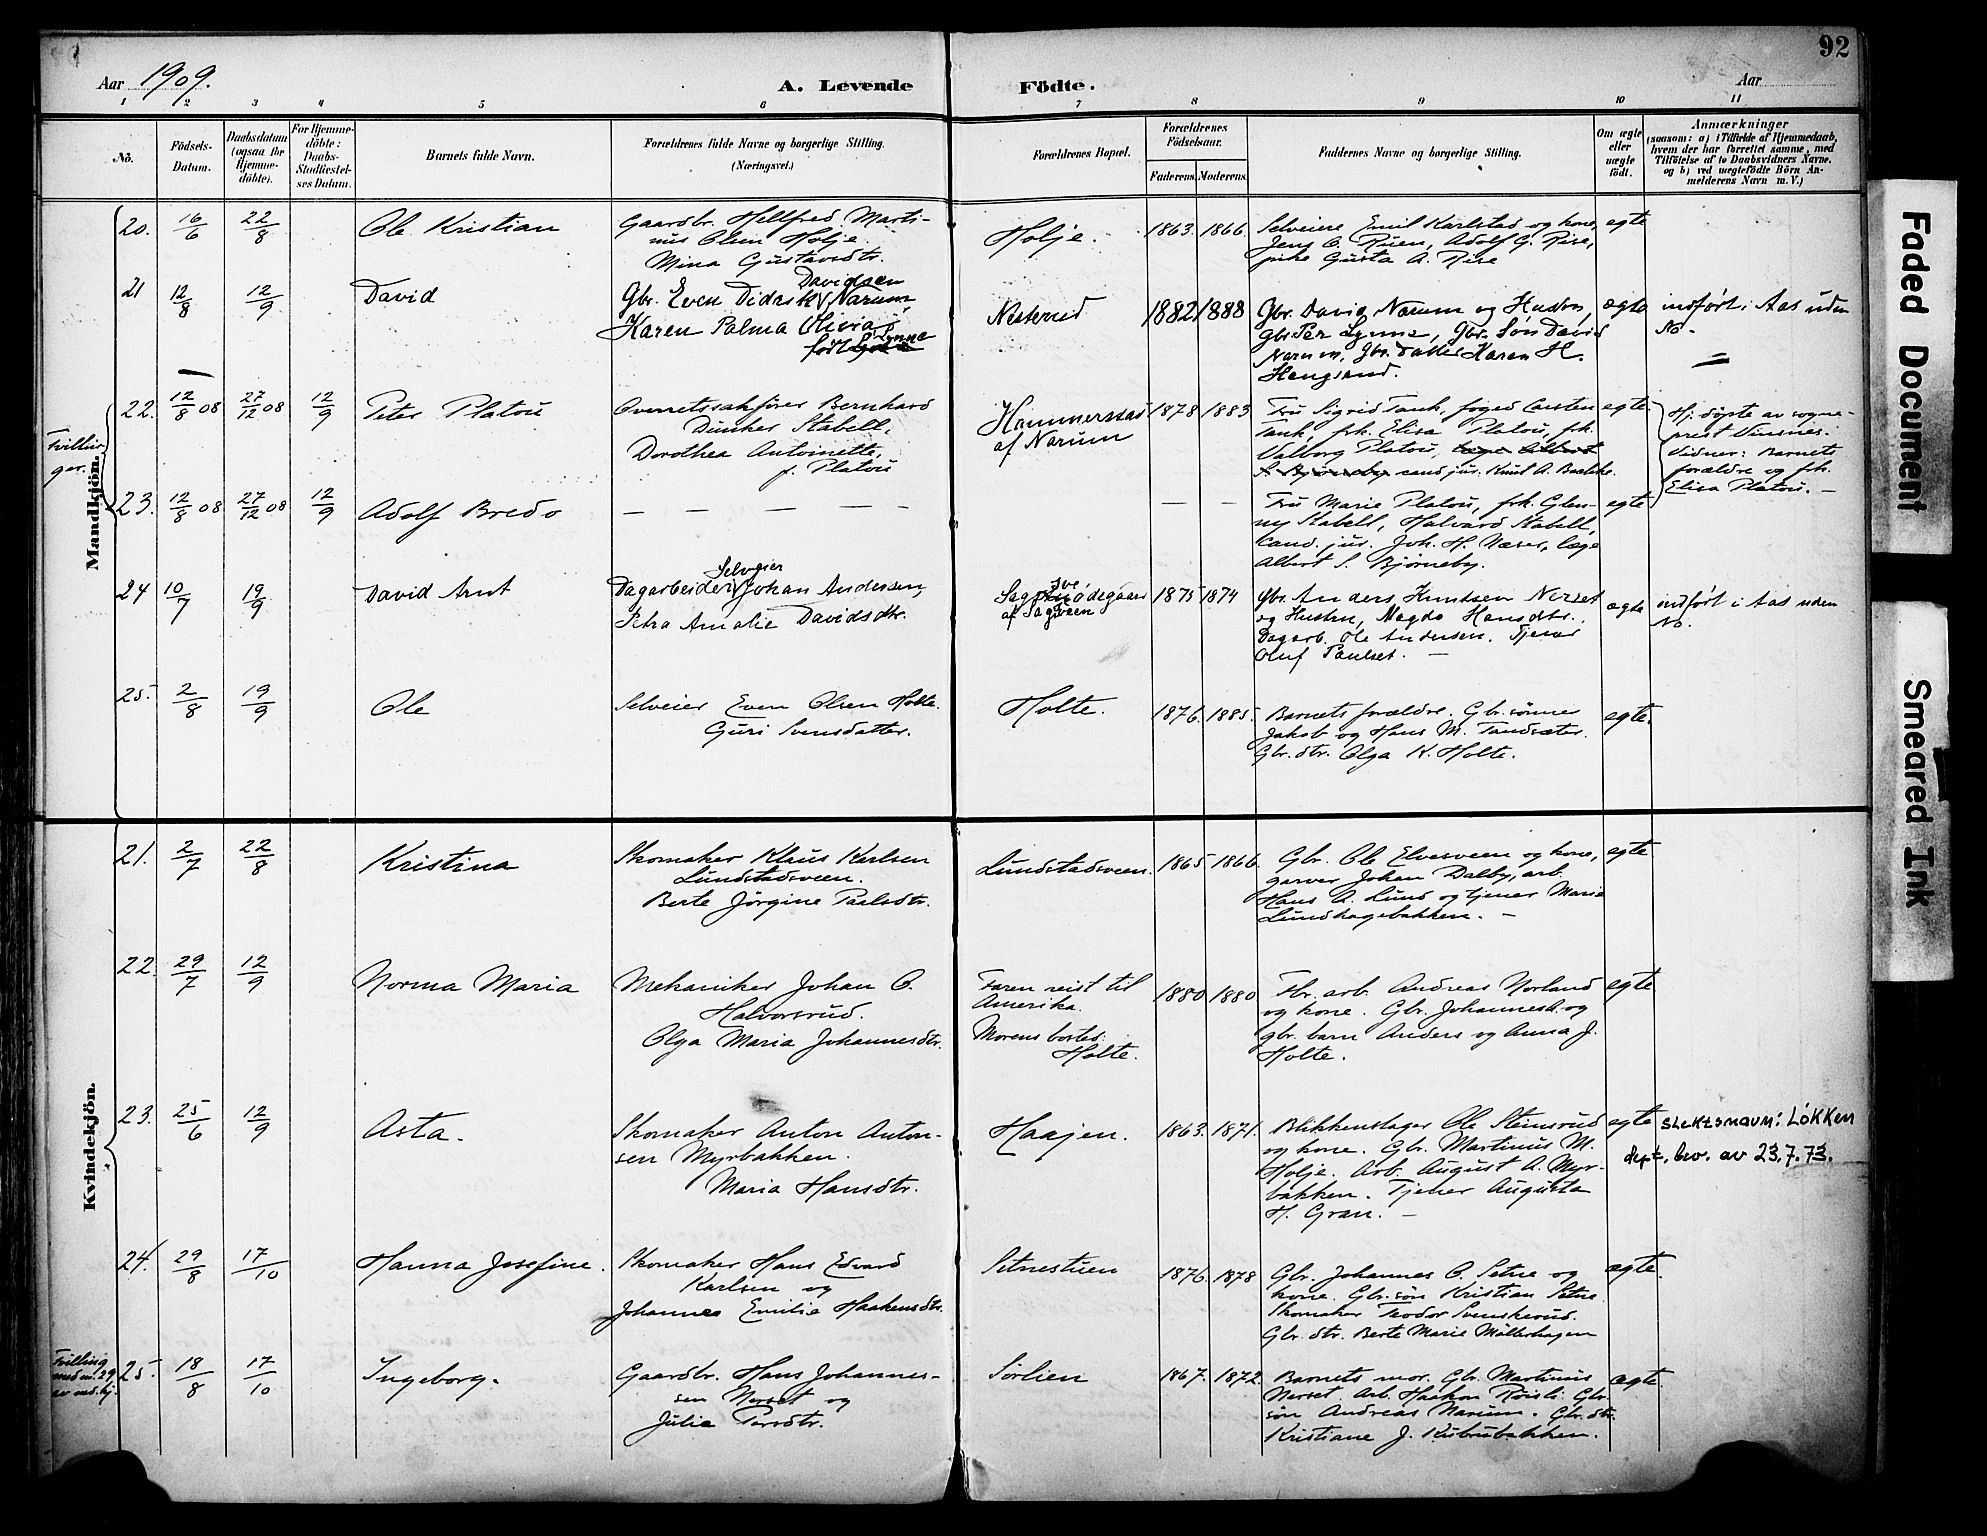 92
Aar 1909.
A. Levende
Födte.
Aar
1 2 3 4 5 6 7 8 9 10 11
No.
Födsels-Datum.
Daabsdatum (ogsaa for Hjemmedöbte).
For Hjemmedöbte: Daabs-Stadfæstelses Datum.
Barnets fulde Navn.
Forældrenes fulde Navne og borgerlige Stilling.
(Næringsvei.)
Forældrenes Bopæl.
Forældrenes Födselsaar.
Faderens. Moderens.
Faddernes Navne og borgerlige Stilling.
Om ægte eller uægte födt.
Anmærkninger
(saasom: a) i Tilfælde af Hjemmedaab, hvem der har forrettet samme, med Tilföielse af to Daabsvidners Navne, og b) ved uægtefödte Börn Anmelderens Navn m. V.)
Mandkjön.
20. 16/6 22/8 Ole Kristian
Gaardbr. Hellfred Marti-
nus Olsen Holje.
Mina Gustavsdtr.
Holje. 1863. 1866.
Selveiere Emil Karlstad og kone,
Jens O. Rüen, Adolf G. Rise,
pike Gusta A. Rise
egte
21 12/8 12/9 David
Davidsen
Gbr. Even Didrik Narum,
Karen Palma Olivia
født Lynne
1882 1888
Gbr. David Narum og Hustru,
Gbr. Per Lynne, Gbr. Søn David
Narum, Gbr. Datter Karen H.
Haugsrud.
ægte
indført i Aas uden
No.
Tvillin-
ger.
22. 12/8 08 27/12 08 12/9 Peter Platou
Overretssakfører Bernhard
Dunker Stabell,
Dorothea Antoinette,
f. Platou
Hammerstad
af Narum
1878 1883
Fru Sigrid Tank, foged Carsten
Tank, frk. Elisa Platou, frk.
Valborg Platou, læge Albert
S. Bjørneby cand jur. Knut A. Baalske.
egte.
Hj. døpte av sogne-
prest Vinsnes.
Vidner: Barnets
forældre og frk.
Elisa Platou. —
23. 12/8 08 27/12 08 12/9 Adolf Bredo
— — — — —
— —
Fru Marie Platou, frk. Glen-
ny Stabell, Halvard Stabell,
Cand. jur. Joh. H. Næser, læge
Albert S. Bjørneby.
egte
24 10/7 19/9 David Arnt
Selveier
Dagarbeider Johan Andersen,
Petra Amalie Davidsdtr.
af Sagveen
1875 1874
Gbr. Anders Knutsen Nerset
og Hustru, Magda Hansdtr.,
Dagarb. Ole Andersen. Tjener
Oluf Paulset. —
ægte
indført i Aas uden
No.
25. 2/8 19/9 Ole
Selveier Even Olsen Holte.
Guri Svensdatter.
Holte. 1876. 1885.
Barnets forældre. Gbr. sønner
Jakob og Hans M. Tandsæter.
Gbr. dtr. Olga K. Holte.
egte.
Kvindekjön.
21. 2/7 22/8 Kristina
Skomaker Klaus Karlsen
Lundstadsveen.
Berte Jørgine Paalsdtr.
Lundstadsveen. 1865 1866.
Gbr. Ole Elvesveen og kone,
garver Johan Dalby, arb.
Hans A. Lund og tjener Marie
Lundhagebakken. —
egte
22. 29/7 12/9 Norma Maria
Mekaniker Johan O.
Halvorsrud.
Olga Maria Johannesdtr.
Faren reist til
Amerika.
Morens bosted:
Holte.
1880 1880
Fbr. arb. Andreas Norland
og kone. Gbr. Johannes A. og
gbr. barn Anders og Anna J.
Holte.
egte
23. 25/6 12/9 Asta.
Skomaker Anton Anton-
sen Myrbakken.
Maria Hansdtr.
Haajen. 1863. 1871.
Blikkenslager Ole Steinsrud
og kone. Gbr. Martinus M.
Holje. Arb. August A. Myr-
bakken. Tjener Augusta
H. Gran. —
egte
slektsnavn: Løkken
dept. bev. av 23.7.73.
24. 29/8 17/10 Hanna Josefine.
Skomaker Hans Edvard
Karlsen og
Johannea Emilie Haakensdtr.
Setnestuen 1876. 1878
Gbr. Johannes O. Setne og
kone. Gbr. søn Kristian Setne
Skomaker Teodor Svenskerud.
Gbr. dtr. Berte Marie Møllerhagen
ægte.
Tvilling
med nr. 29
av md. kj.
25. 18/8 17/10 Ingeborg.
Gaardbr. Hans Johannes-
sen Nerset og
Julie Persdtr.
Sørlien 1867. 1872.
Barnets mor. Gbr. Martinus
Nerset. Arb. Haakon Röisli. Gbr.
søn Andreas Narum. Gbr. dtr.
Kristiane J. Kubrubakken.
ægte.
Faded Document
Smeared Ink